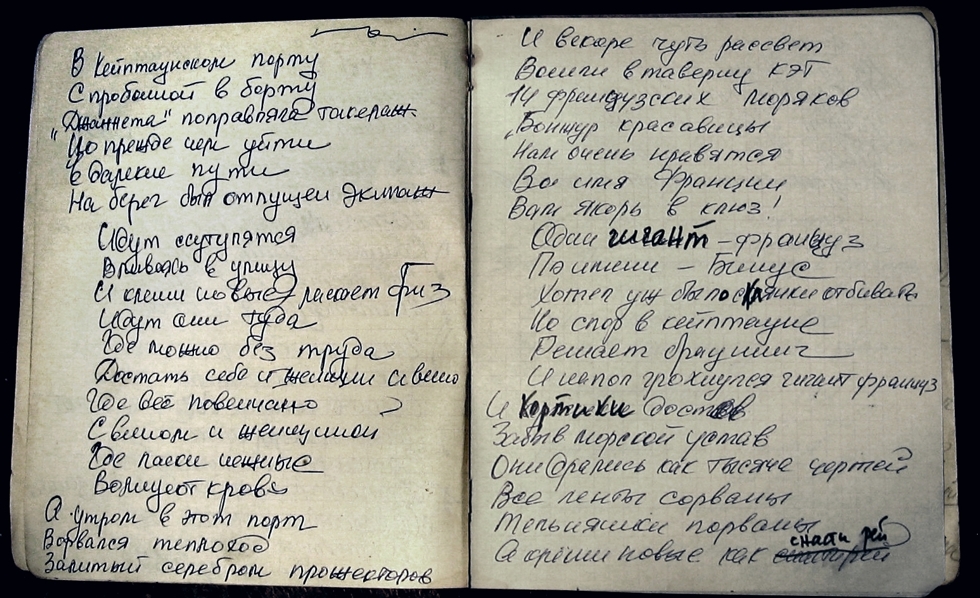 В Кейптаунском порту
С пробоиной в борту
"Джаннета" поправляла такелаж
Но прежде чем уйти
в далекие пути
На берег был отпущен экипаж
Идут сутулятся
Вливаясь в улицу
И клеши новые ласкает бриз
Идут они туда
Где можно без труда
Достать себе и женщин и вино
Где всё повенчано
С вином и женщиной
Где ласки нежные
Волнуют кровь
А утром в этот порт
Ворвался теплоход
Залитый серебром прожекторов
И вскоре чуть рассвет
Вошли в таверну КЭТ
14 французских моряков
"Бонжур красавицы
Нам очень нравятся
Во имя Франции
Вам якорь в клюз!
Один гигант - француз
По имени - Бинус
Хотел уж было отбивать
Но спор в кейптауне
Решает браунинг
И на пол грохнулся гигант француз
И кортики достав
Забыв морской устав
Они дрались как тысяча чертей
Все ленты сорваны
Тельняшки порваны
А клеши новые как снасти рей